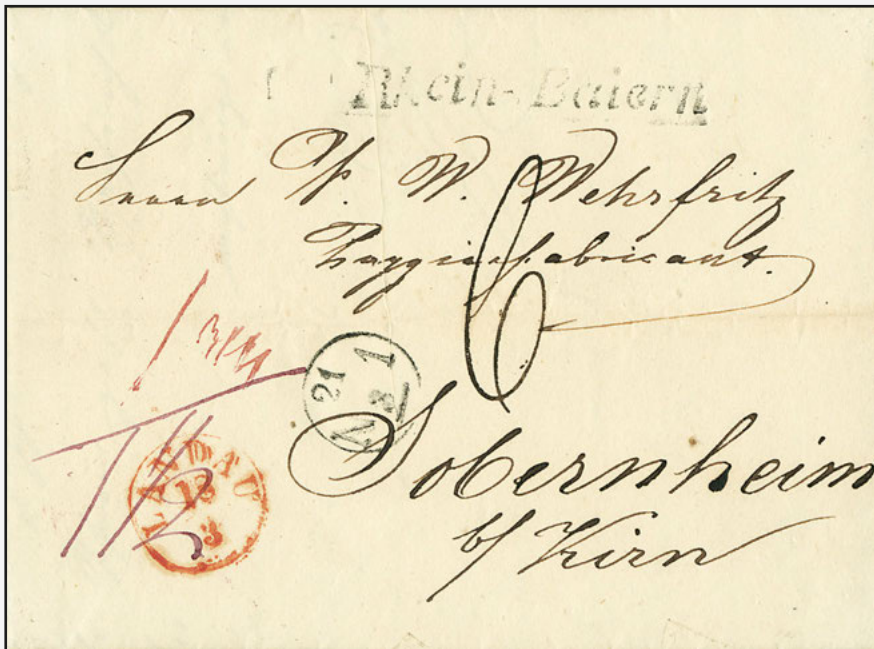 Rhein-Baiern
Herrn W. Wehrfritz
fabricant.
6
1
21
3
1
LANDAU
18
3
Sobernheim
b/ Kirn